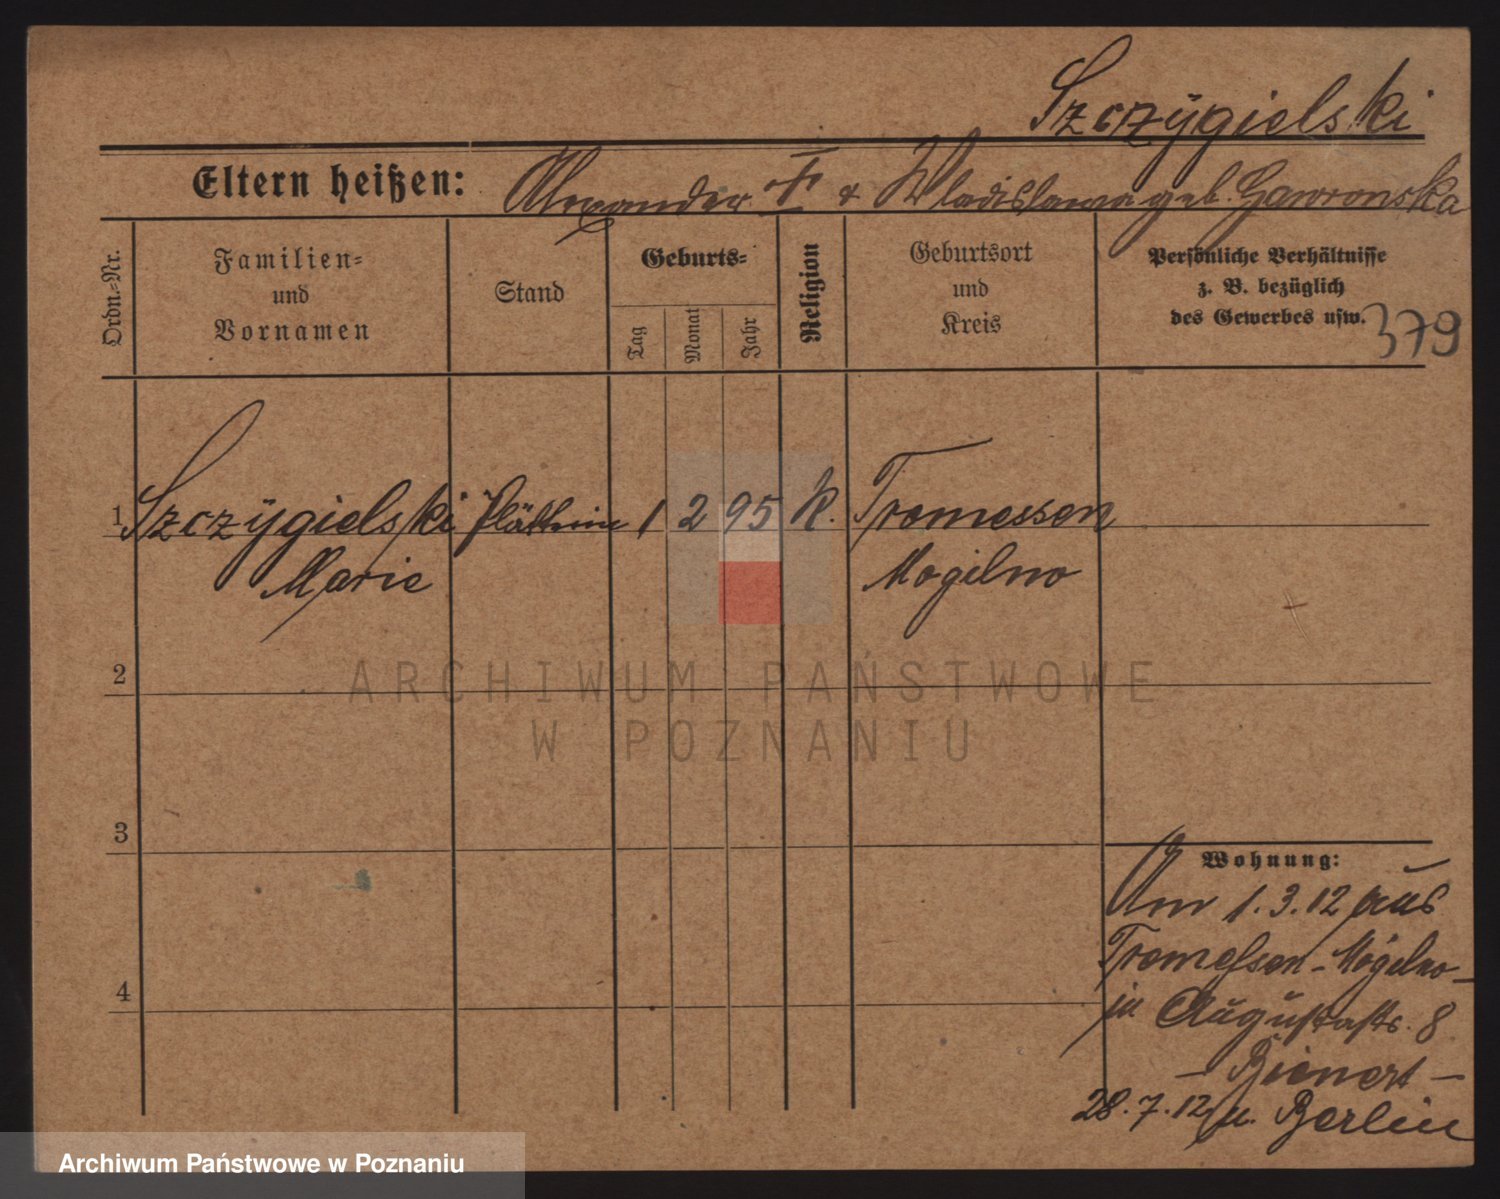 Szczÿgielski
Eltern heißen: Alexander † & Wladislawa geb. Gawronska
Ordn.-Nr.
Familien-
und
Vornamen
Stand
Geburts-
Tag
Monat
Jahr
Religion
Geburtsort
und
Kreis
Persönliche Verhältnisse
z. B. bezüglich
des Gewerbes usw.
379
1 Szczÿgielski Plätterin 1 2 95 K. Tremessen
Marie Mogilno
2
ARCHIWUM PAŃSTWOWE
W POZNANIU
3
Wohnung:
Am 1.3.12 aus
Tremessen - Mogilno -
in Augustastr. 8
- Bienert -
4
28.7.12 n. Berlin
Archiwum Państwowe w Poznaniu